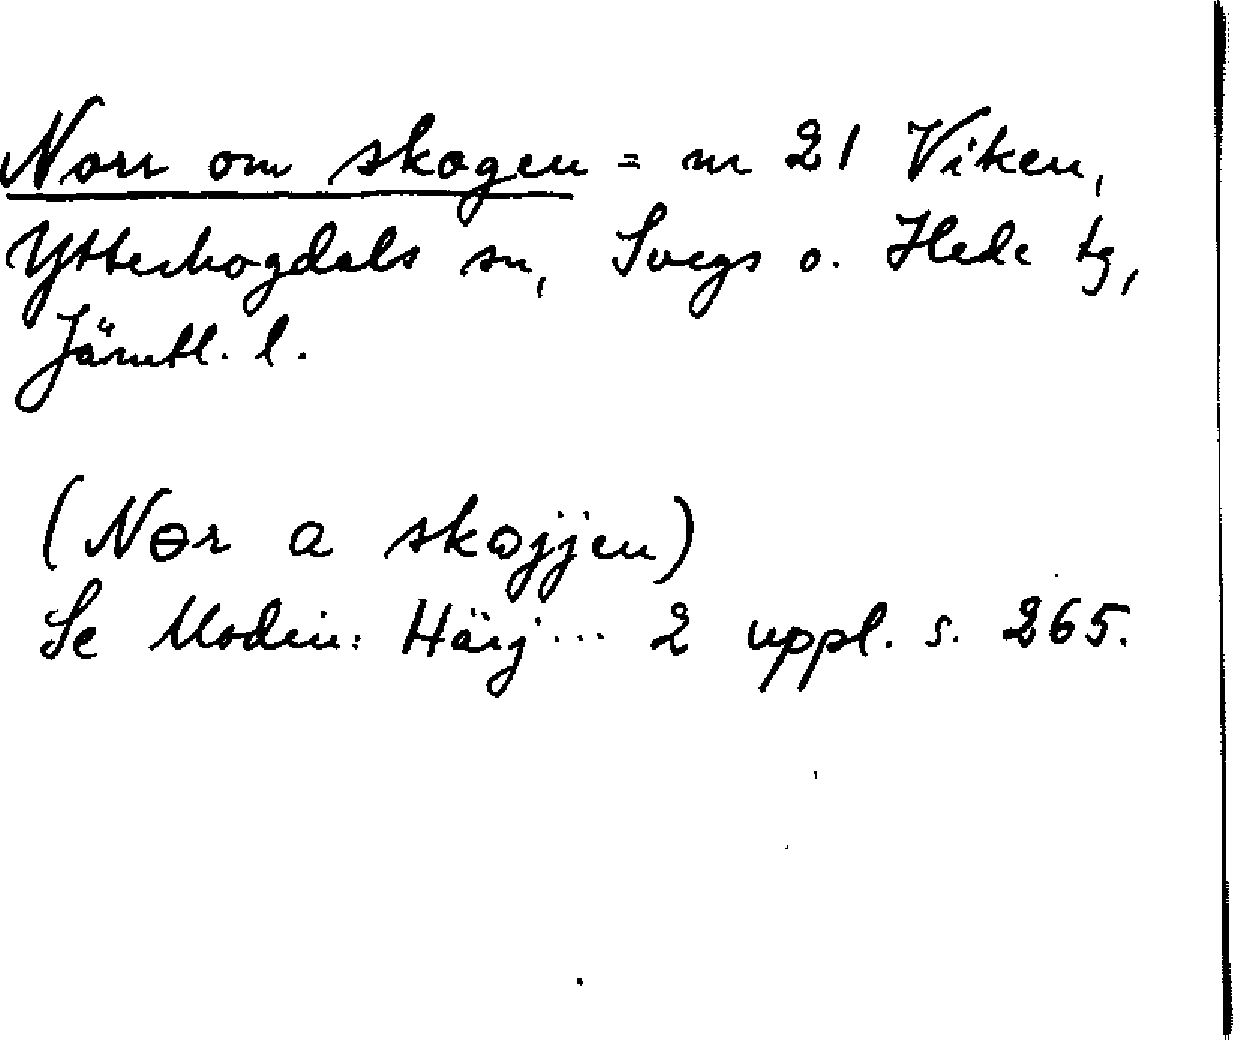 Norr om skogen = nr 21 Viken,
Ytterhogdals sn, Svegs o. Hede tg,
Jämtl. l.
(Nɵr a skojjen)
Se Modin: Härj... 2 uppl. s. 265.